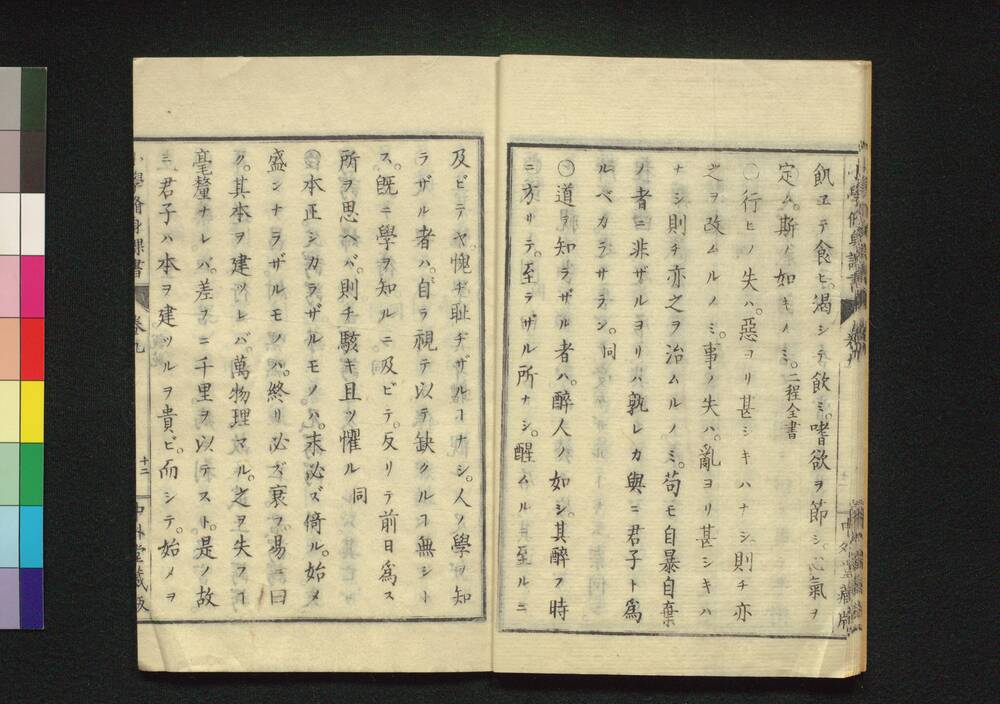 小學修身課書
中外堂藏版
飢ヱテ食ヒ。渴シテ飲ミ。嗜欲ヲ節シ。心氣ヲ
定ム。斯ノ如キノミ。二程全書
○行ヒノ失ハ。惡ヨリ甚シキハナシ。則チ亦
之ヲ改ムルノミ。事ノ失ハ。亂ヨリ甚シキハ
ナシ。則チ亦之ヲ治ムルノミ。苟モ自暴自棄
ノ者ニ非ザルヨリハ。孰レカ與ニ君子ト爲
ルベカラサラン。同
○道ヲ知ラザル者ハ。醉人ノ如シ。其醉フ時
ニ方リテ。至ラザル所ナシ。醒ムルニ至ルニ
及ビテヤ。愧ヂ耻ヂザルヿナシ。人ノ學ヲ知
ラザル者ハ。自ラ視テ以テ缺クルヿ無シト
ス。既ニ學ヲ知ルニ及ビテ。反リテ前日爲ス
所ヲ思ヘバ。則チ駭キ且ツ懼ル 同
○本正シカラザルモノハ。末必ズ倚ル。始メ
盛ンナラザルモノハ。終リ必ズ衰フ。易ニ曰
ク。其本ヲ建ツレバ。萬物理マル。之ヲ失フヿ
毫釐ナレバ。差フニ千里ヲ以テスト。是ノ故
ニ君子ハ本ヲ建ツルヲ貴ビ。而シテ。始メヲ
小學脩身課書
卷九
十二
中外堂藏版